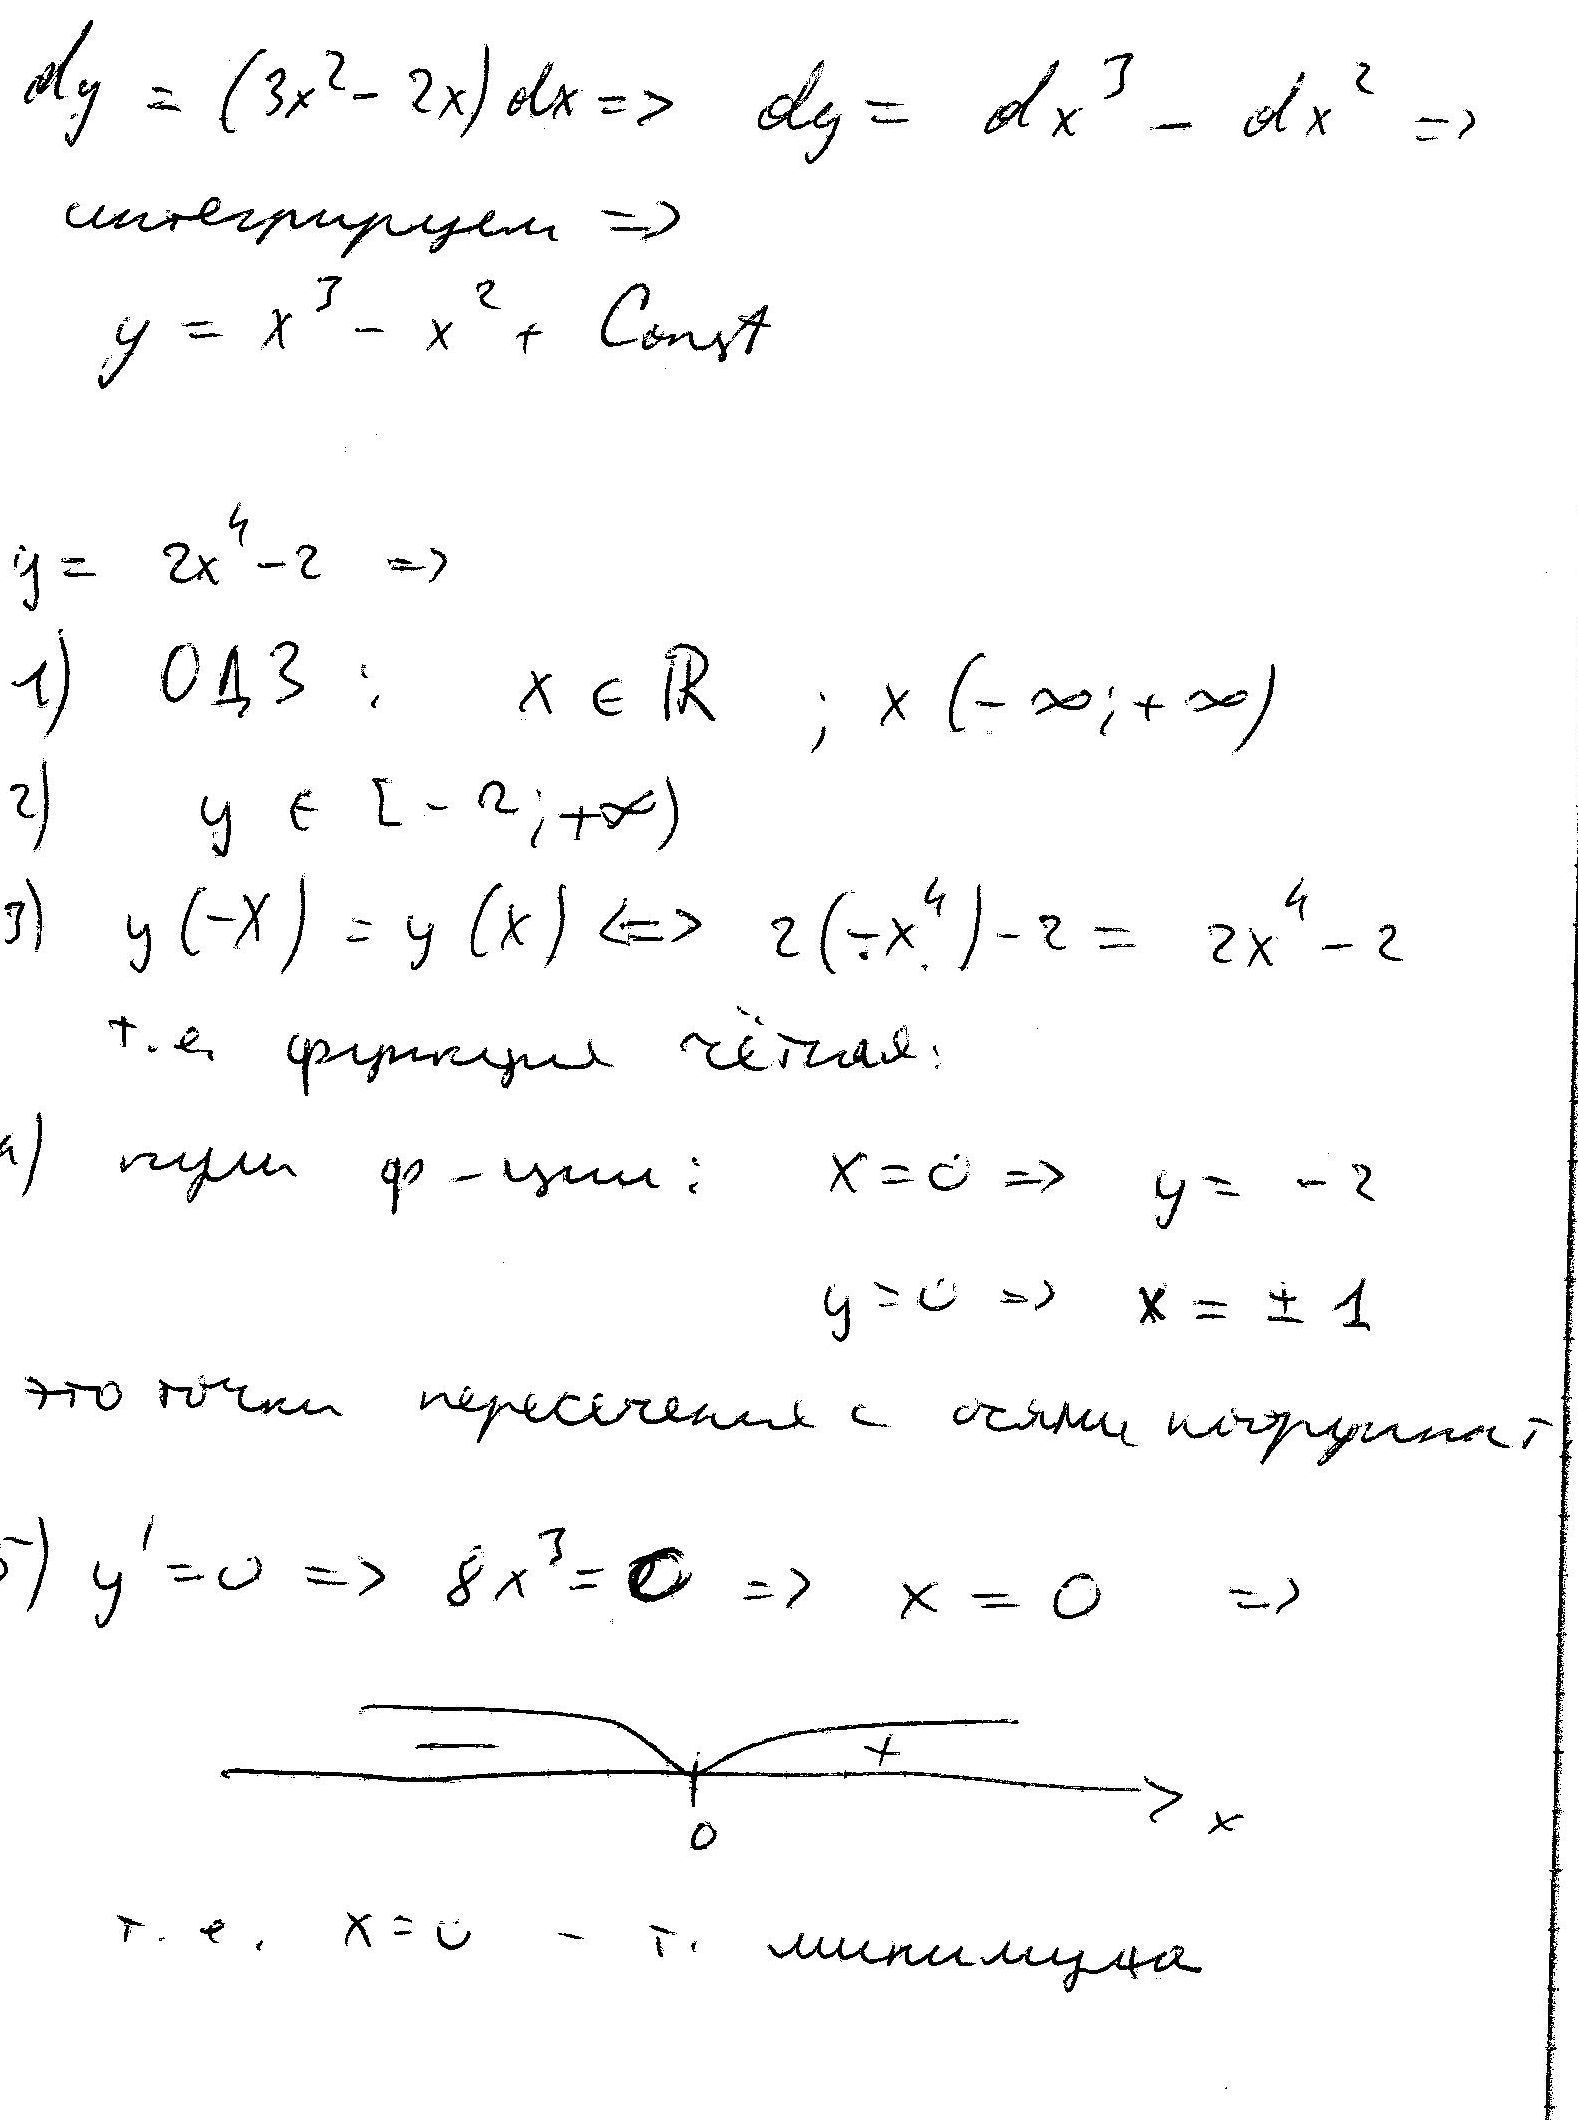 dy = (3x² - 2x) dx => dy = dx³ - dx² =>
интегрируем =>
y = x³ - x² + Const
y = 2x⁴ - 2 =>
1) ОДЗ : x ∈ ℝ ; x (-∞; +∞)
2) y ∈ [-2; +∞)
3) y(-x) = y(x) <=> 2(-x⁴) - 2 = 2x⁴ - 2
т.е. функция чётная:
4) нули ф-ции: x = 0 => y = -2
y = 0 => x = ± 1
это точки пересечения с осями координат
5) y' = 0 => 8x³ = 0 => x = 0 =>
— +
0 x
т.е. x = 0 - т. минимума